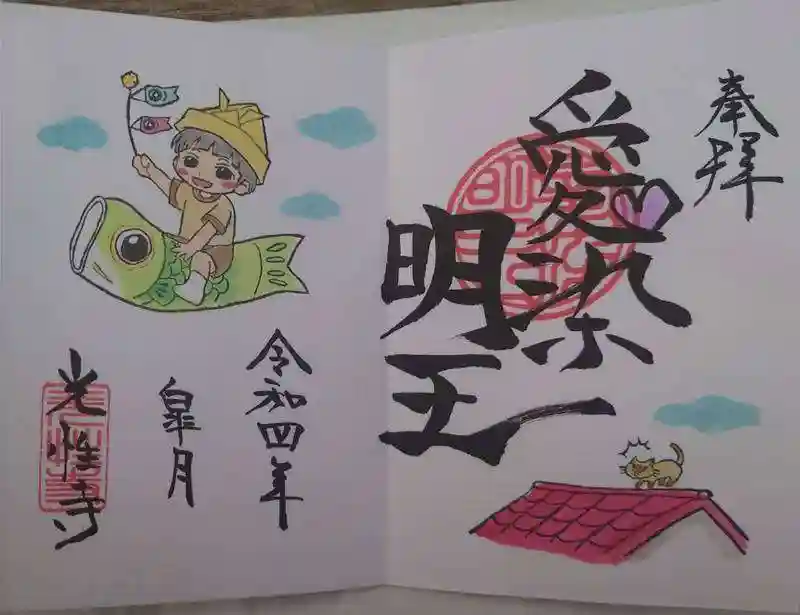 奉拝
愛染
明王
令和四年
皐月
光性寺